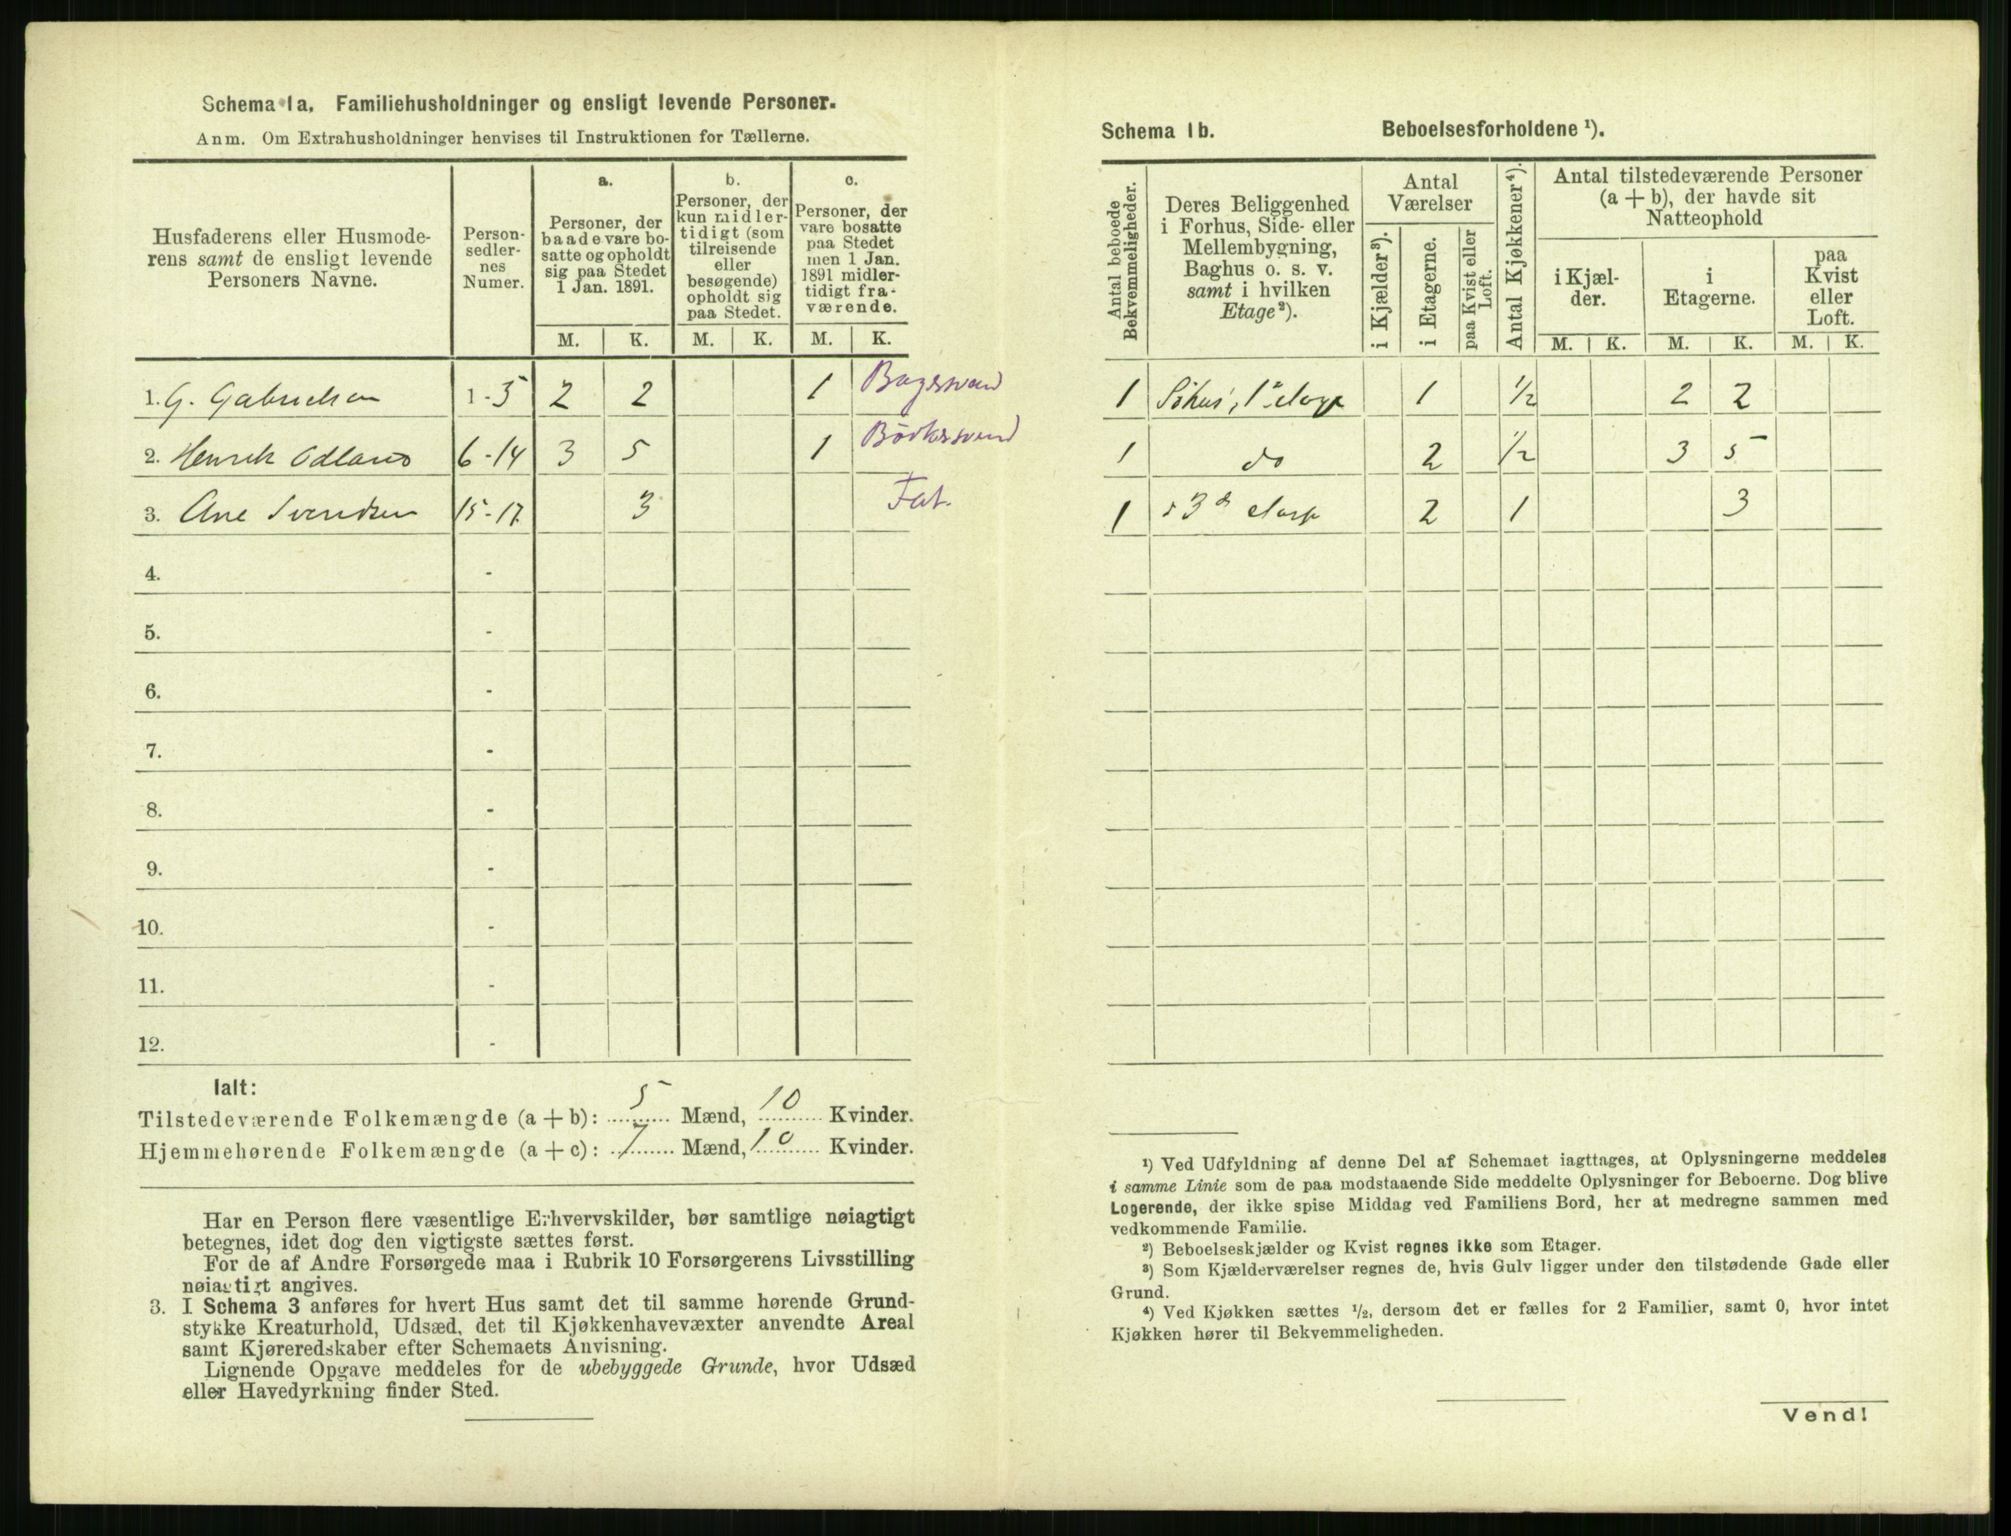 Schema 1a. Familiehusholdninger og ensligt levende Personer.
Anm. Om Extrahusholdninger henvises til Instruktionen for Tællerne.
Husfaderens eller Husmode-
rens samt de ensligt levende
Personers Navne.
Person-
sedler-
nes
Numer.
a.
Personer, der
baade vare bo-
satte og opholdt
sig paa Stedet
1 Jan. 1891.
b.
Personer, der
kun midler-
tidigt (som
tilreisende
eller
besøgende)
opholdt sig
paa Stedet.
c.
Personer, der
vare bosatte
paa Stedet
men 1 Jan.
1891 midler-
tidigt fra-
værende.
M. K. M. K. M. K.
1. G. Gabrielsen 1-5 2 2 1 Bagersvend
2. Henrik Odland 6-14 3 5 1 Bødkersvend
3. Ane Svendsen 15-17 3 Fat.
4. -
5. -
6. -
7. -
8. -
9. -
10. -
11. -
12. -
Ialt:
Tilstedeværende Folkemængde (a + b): 5 Mænd, 10 Kvinder.
Hjemmehørende Folkemængde (a + c): 7 Mænd, 10 Kvinder.
Har en Person flere væsentlige Erhvervskilder, bør samtlige nøiagtigt
betegnes, idet dog den vigtigste sættes først.
For de af Andre Forsørgede maa i Rubrik 10 Forsørgerens Livsstilling
nøiagtigt angives.
3. I Schema 3 anføres for hvert Hus samt det til samme hørende Grund-
stykke Kreaturhold, Udsæd, det til Kjøkkenhavevæxter anvendte Areal
samt Kjøreredskaber efter Schemaets Anvisning.
Lignende Opgave meddeles for de ubebyggede Grunde, hvor Udsæd
eller Havedyrkning finder Sted.
Schema 1b. Beboelsesforholdene ¹).
Antal beboede
Bekvemmeligheder.
Deres Beliggenhed
i Forhus, Side- eller
Mellembygning,
Baghus o. s. v.
samt i hvilken
Etage²).
Antal
Værelser
i Kjælder³).
i Etagerne.
paa Kvist eller
Loft.
Antal Kjøkkener⁴).
Antal tilstedeværende Personer
(a + b), der havde sit
Natteophold
i Kjæl-
der.
i
Etagerne.
paa
Kvist
eller
Loft.
M. K. M. K. M. K.
1 Söhus, 1ste etage 1 1/2 2 2
1 do 2 1/2 3 5
1 3d etage 2 1 3
¹) Ved Udfyldning af denne Del af Schemaet iagttages, at Oplysningerne meddeles
i samme Linie som de paa modstaaende Side meddelte Oplysninger for Beboerne. Dog blive
Logerende, der ikke spise Middag ved Familiens Bord, her at medregne sammen med
vedkommende Familie.
²) Beboelseskjælder og Kvist regnes ikke som Etager.
³) Som Kjælderværelser regnes de, hvis Gulv ligger under den tilstødende Gade eller
Grund.
⁴) Ved Kjøkken sættes 1/2, dersom det er fælles for 2 Familier, samt 0, hvor intet
Kjøkken hører til Bekvemmeligheden.
Vend!